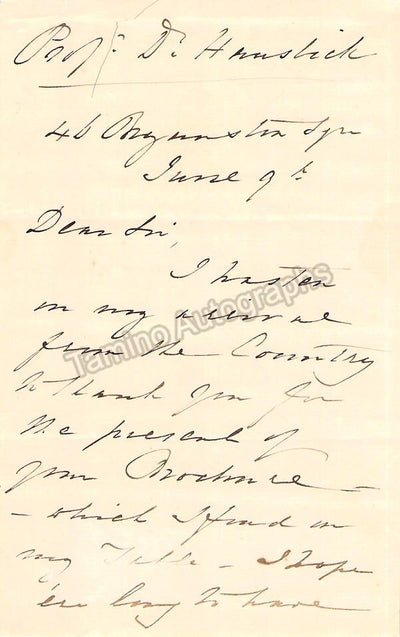 Profr. Dr. Hanslick
46 Bryanston Sqre
June 9th
Dear Sir,
I hasten
on my arrival
from the Country
to thank you for
the present of
your Brochure –
– which I find on
my Table – I hope
ere long to have
Tamino Autographs